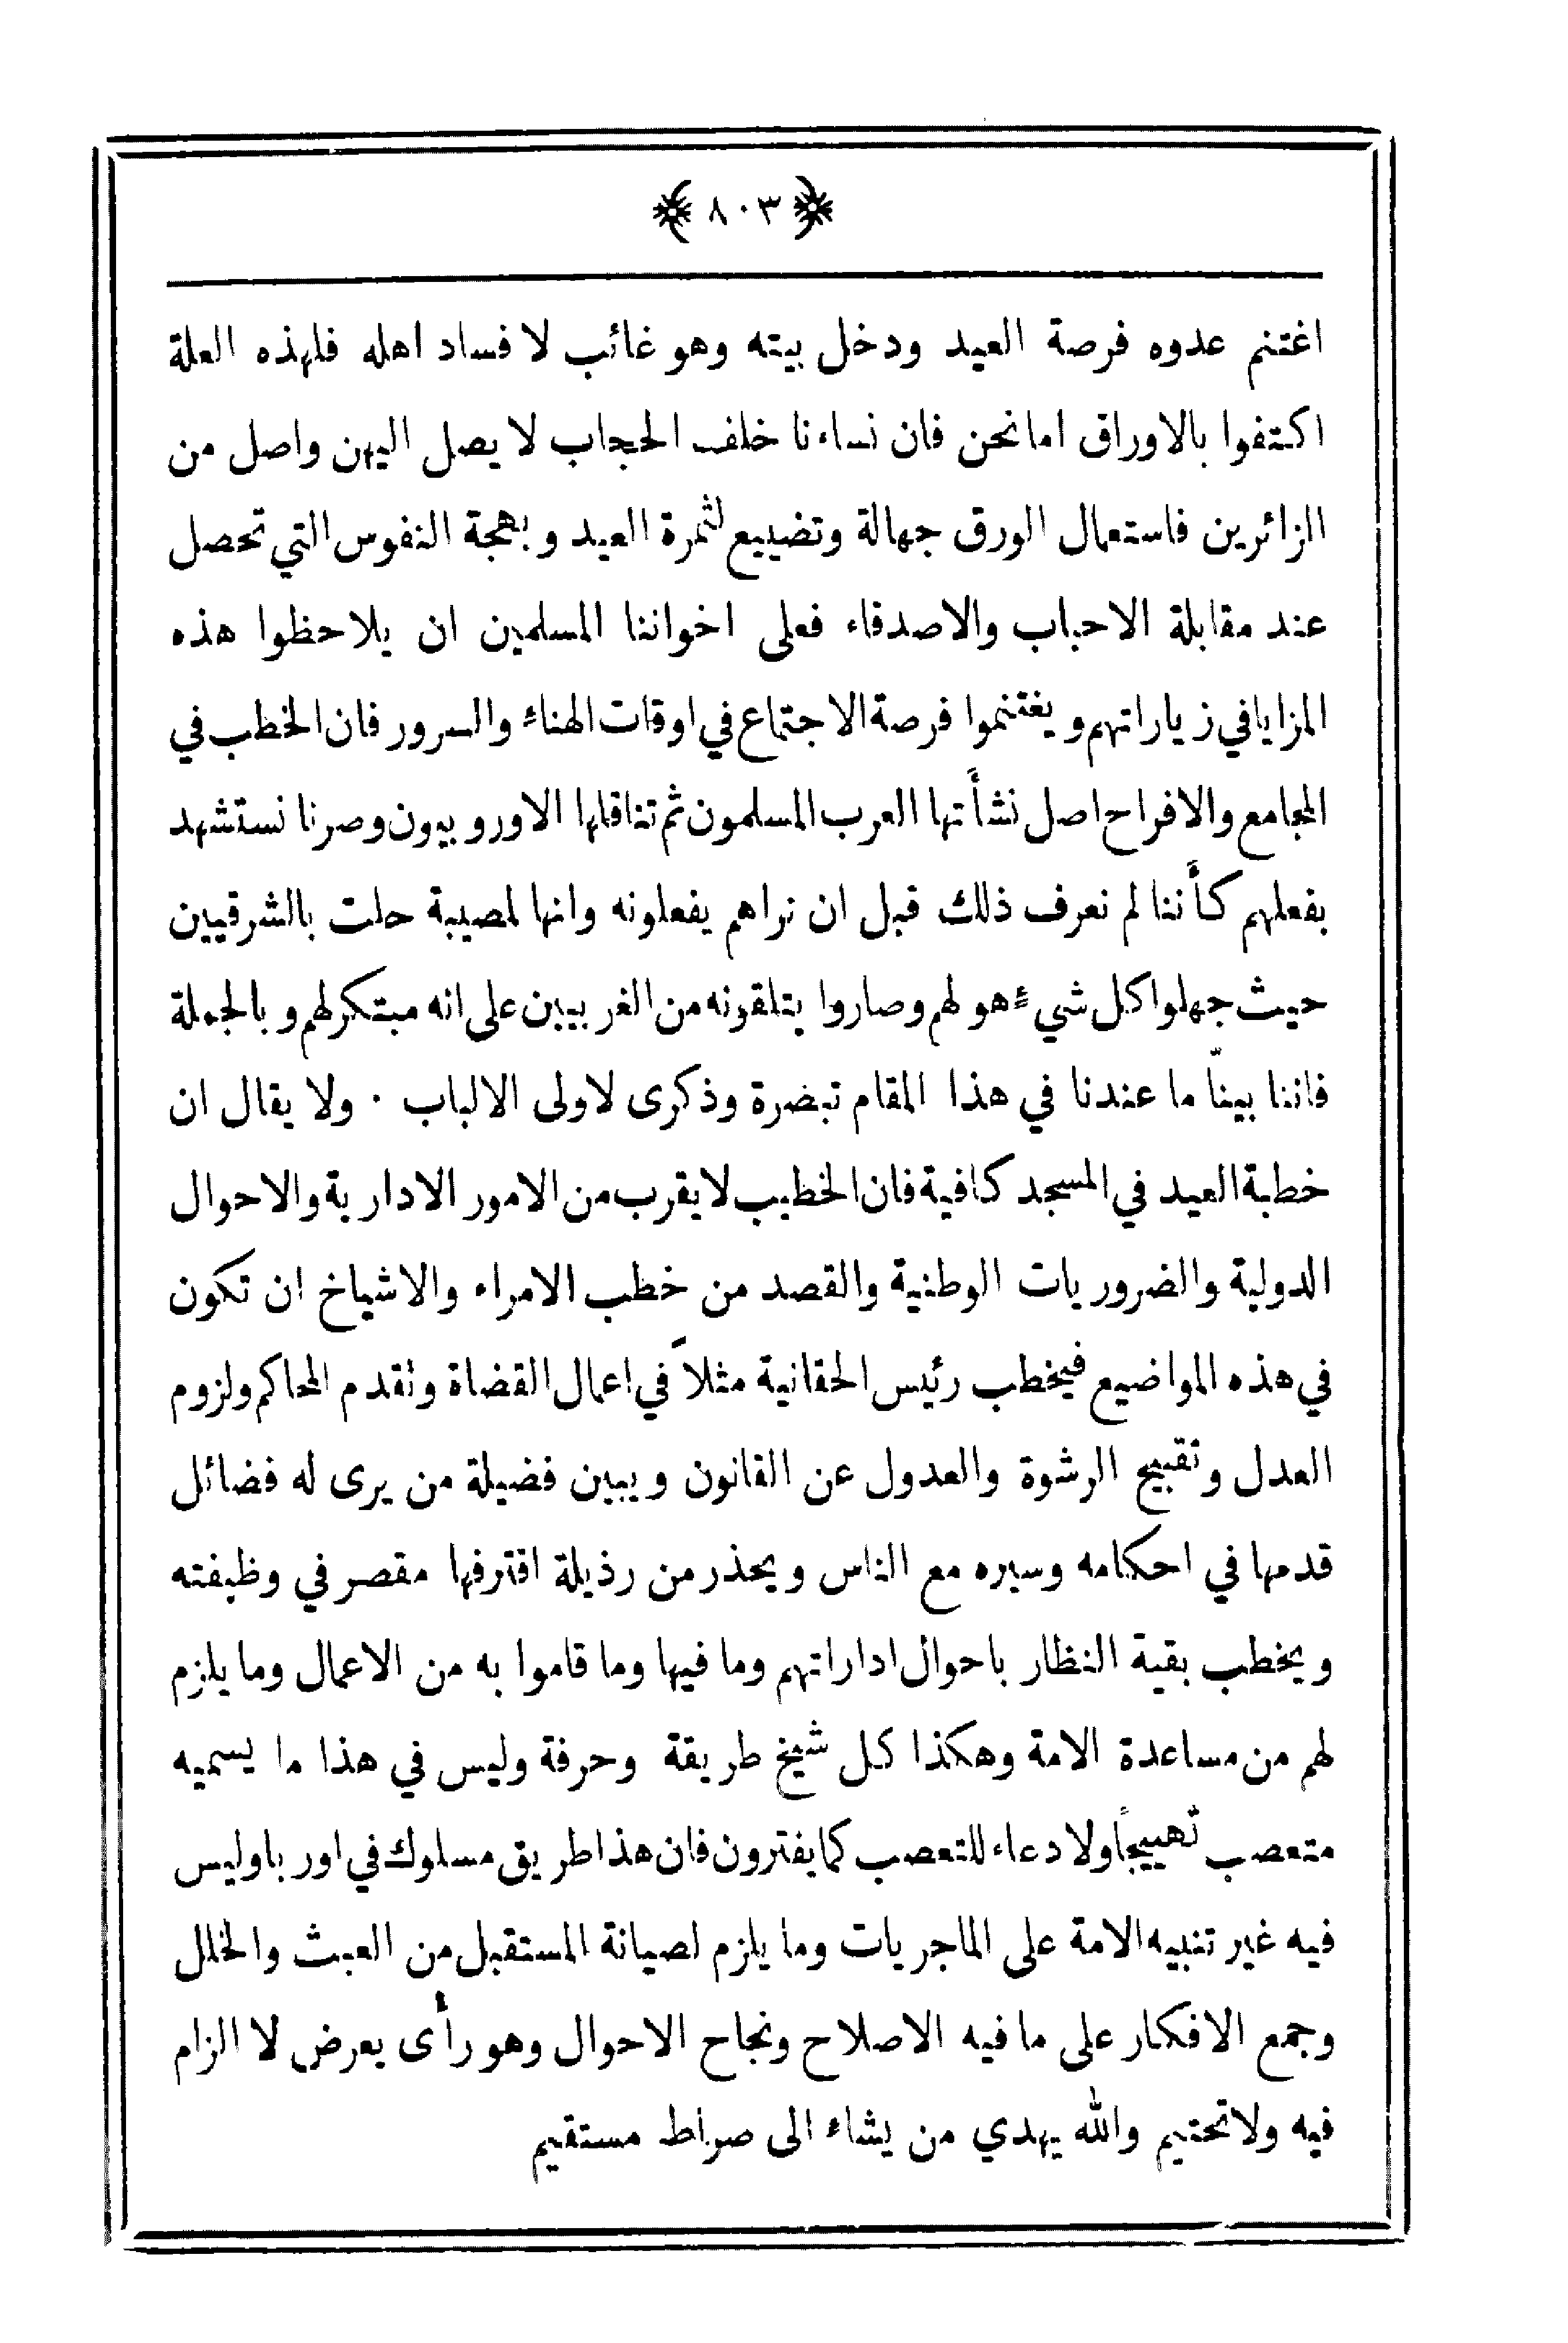 ٨٠٣
اغتنم عدوه فرصة العيد ودخل بيته وهو غائب لافساد اهله فلهذه العلة
اكتفوا بالاوراق اما نحن فان نساءنا خلف الحجاب لا يصل اليهن واصل من
الزائرين فاستعمال الورق جهالة وتضييع لثمرة العيد وبهجة النفوس التي تحصل
عند مقابلة الاحباب والاصدقاء فعلى اخواننا المسلمين ان يلاحظوا هذه
المزايا في زياراتهم ويغتنموا فرصة الاجتماع في اوقات الهناء والسرور فان الخطب في
المجامع والافراح اصل نشأتها العرب المسلمون ثم تناقلها الاوروبيون وصرنا نستشهد
بفعلهم كأننا لم نعرف ذلك قبل ان نراهم يفعلونه وانها لمصيبة حلت بالشرقيين
حيث جهلوا كل شيء هو لهم وصاروا يتلقونه من الغربيين على انه مبتكر لهم وبالجملة
فاننا بينّا ما عندنا في هذا المقام تبضرة وذكرى لاولى الالباب . ولا يقال ان
خطبة العيد في المسجد كافية فان الخطيب لا يقرب من الامور الادارية والاحوال
الدولية والضروريات الوطنية والقصد من خطب الامراء والاشياخ ان تكون
في هذه المواضيع فيخطب رئيس الحقانية مثلاً في اعمال القضاة وتقدم المحاكم ولزوم
العدل وتقبيح الرشوة والعدول عن القانون ويبين فضيلة من يرى له فضائل
قدمها في احكامه وسيره مع الناس ويحذر من رذيلة اقترفها مقصر في وظيفته
ويخطب بقية النظار باحوال اداراتهم وما فيها وما قاموا به من الاعمال وما يلزم
لهم من مساعدة الامة وهكذا كل شيخ طريقة وحرفة وليس في هذا ما يسميه
متعصب تهييجاً ولا دعاء للتعصب كما يفترون فان هذا طريق مسلوك في اوربا وليس
فيه غير تنبيه الامة على الماجريات وما يلزم لصيانة المستقبل من العبث والخلل
وجمع الافكار على ما فيه الاصلاح ونجاح الاحوال وهو رأى يعرض لا الزام
فيه ولا تحتيم والله يهدي من يشاء الى صراط مستقيم